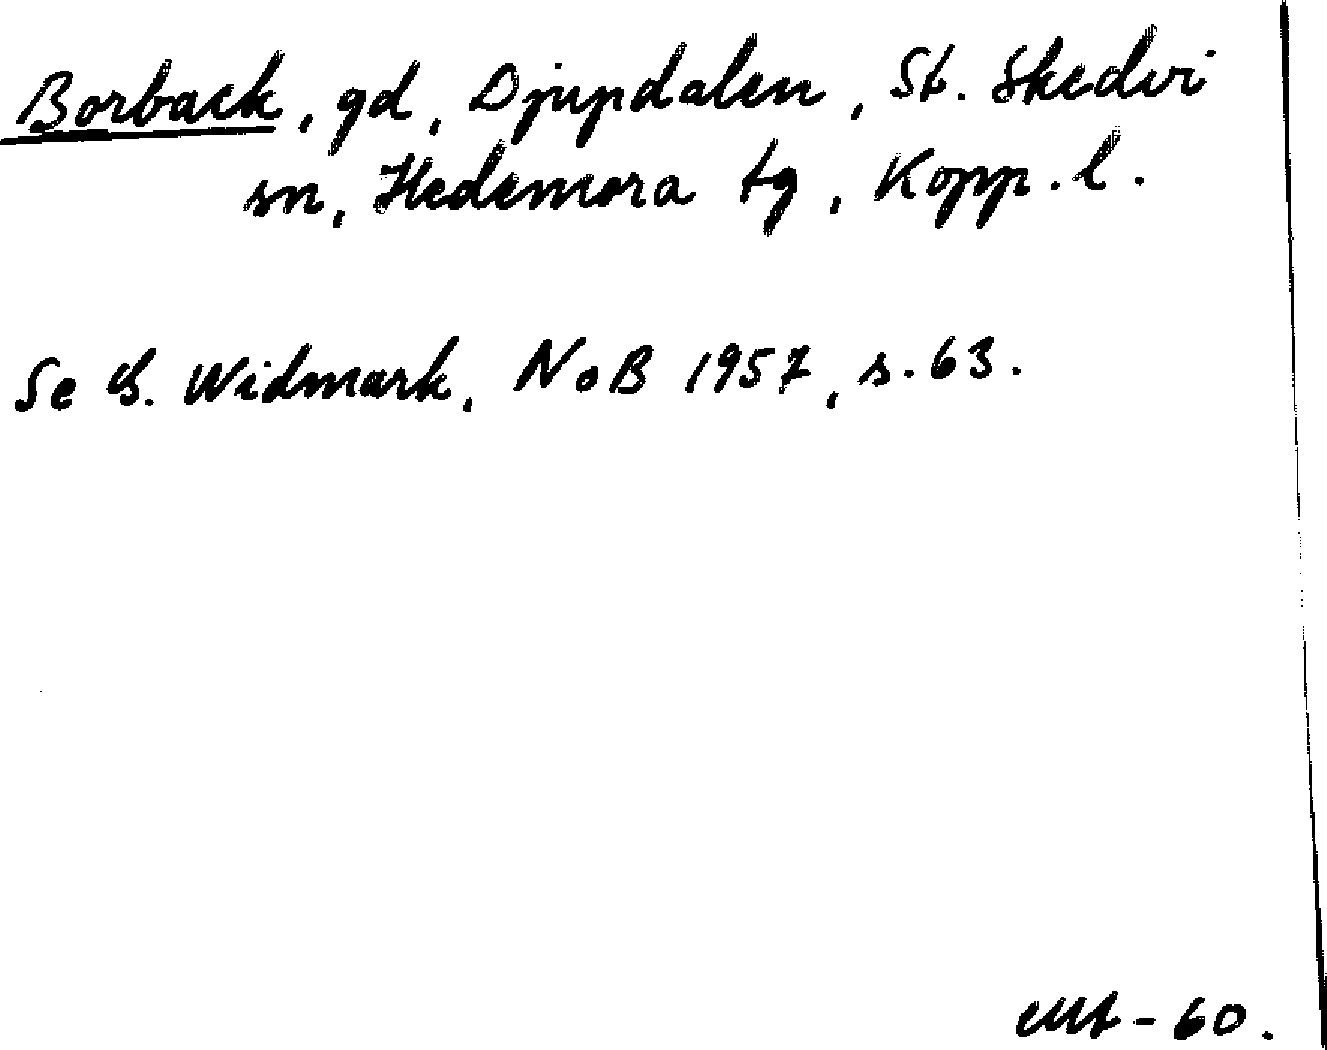 Borback, gd, Djupdalen, St. Skedvi
sn, Hedemora tg, Kopp. l.
Se G. Widmark, NoB 1957, s. 63.
- 60.